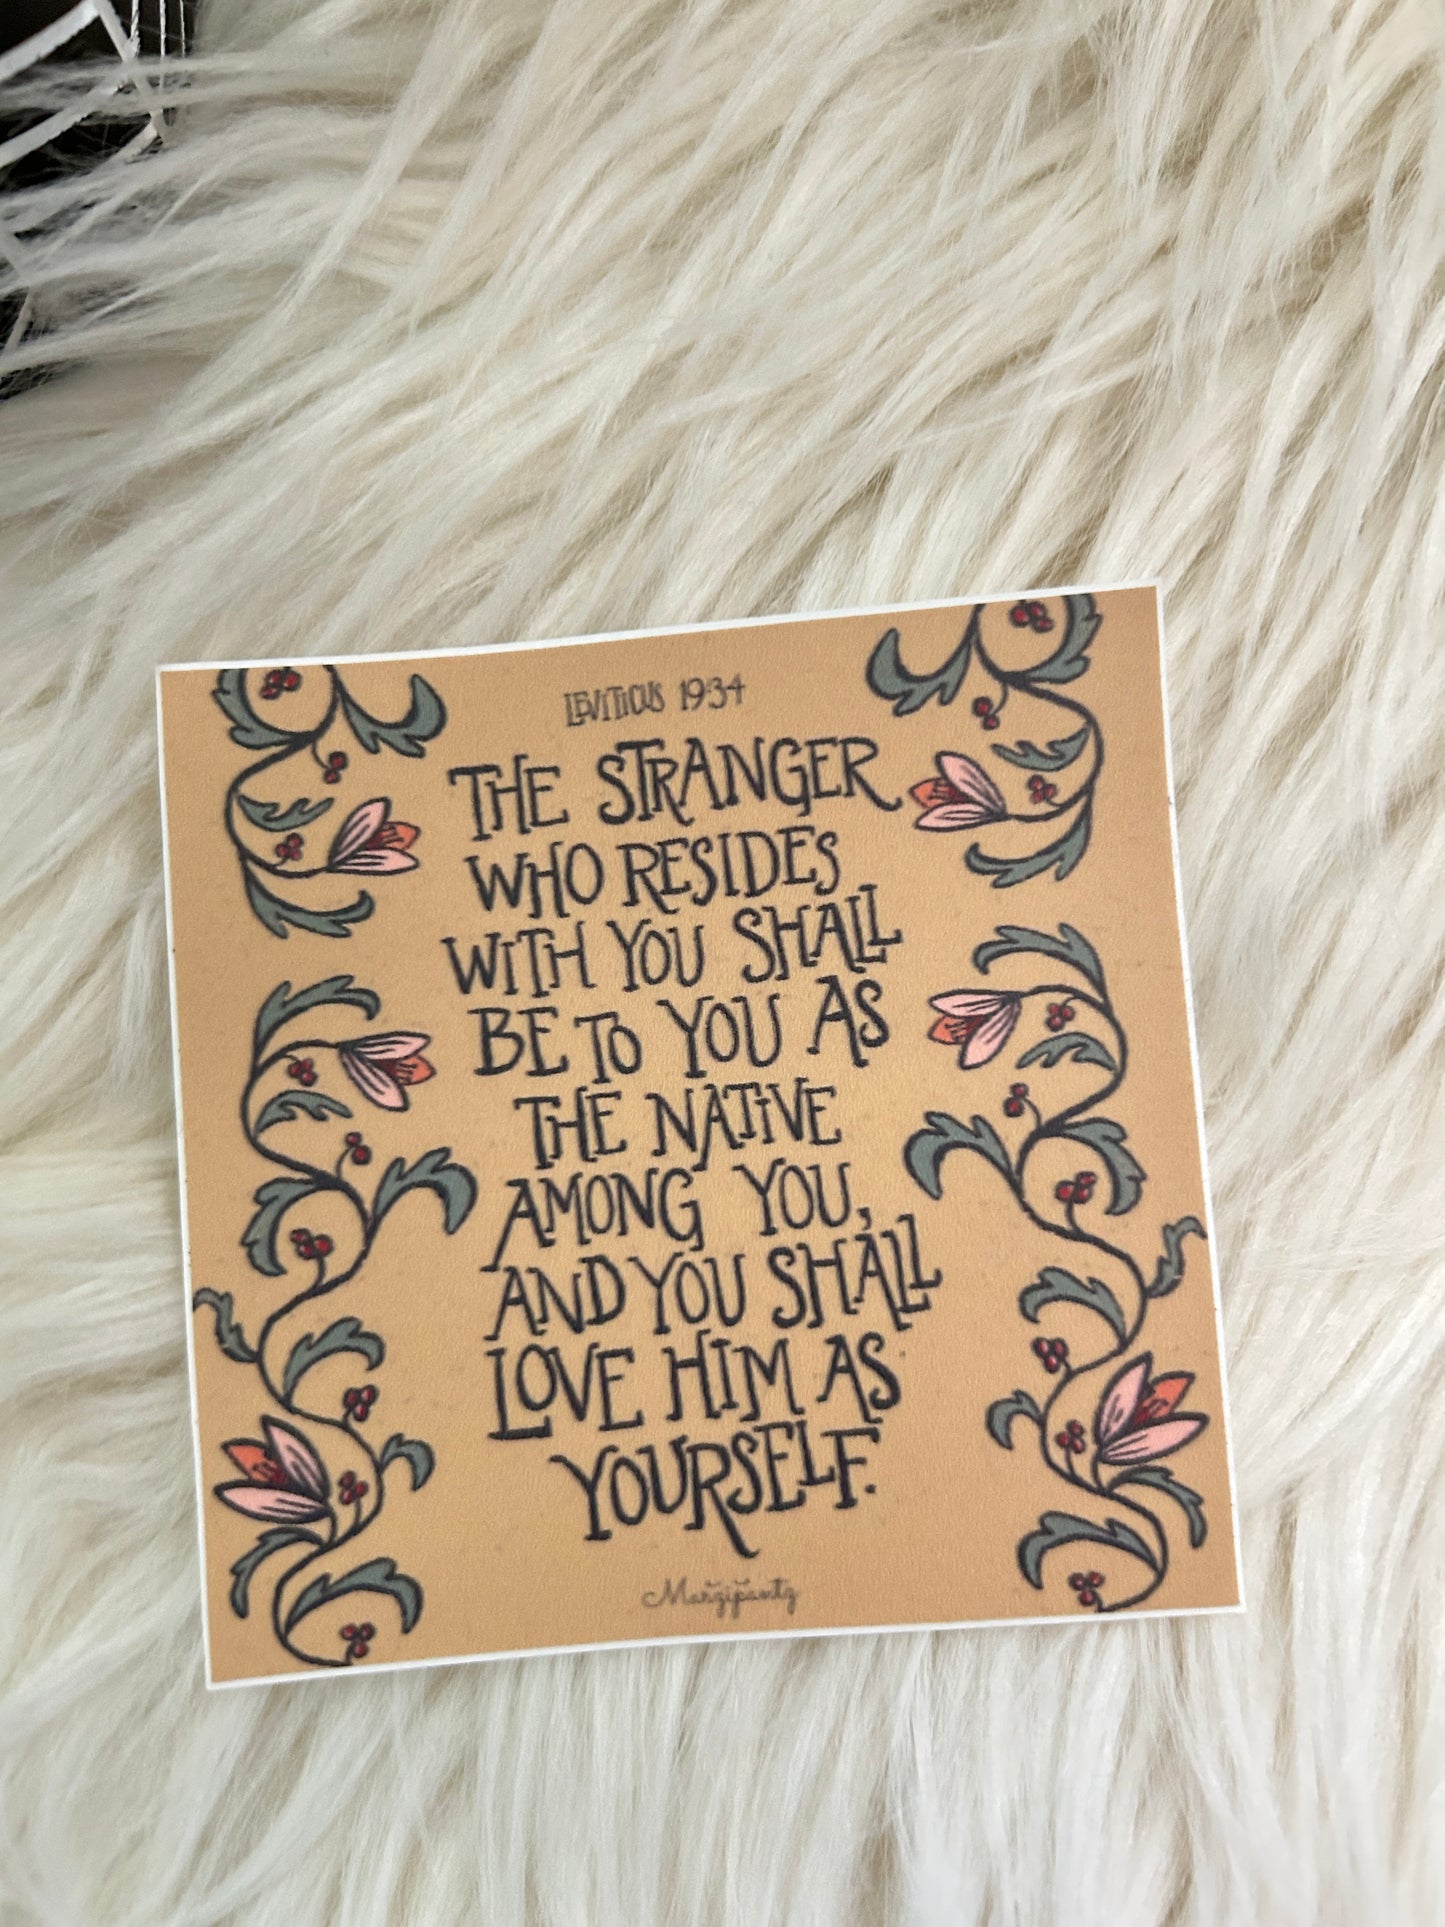 LEVITICUS 19:34
THE STRANGER
WHO RESIDES
WITH YOU SHALL
BE TO YOU AS
THE NATIVE
AMONG YOU,
AND YOU SHALL
LOVE HIM AS
YOURSELF.
Marzipantz